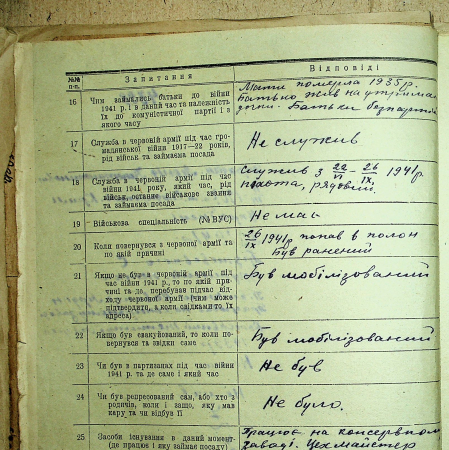 №№ п-п.
Запитання
Відповіді
16
Чим займались батьки до війни
1941 р. і в даний час та належність
їх до комуністичної партії і з
якого часу
Мати померла 1935 р.
Батько жив на утриман
дочки. Батьки безпартій
17
Служба в червоній армії під час гро-
мадянської війни 1917—22 років,
рід військ та займаєма посада
Не служив
18
Служба в червоній армії під час
війни 1941 року, який час, рід
військ, останнє військове звання
та займаєма посада
Служив з 22/VI – 26/IX, 1941 р
піхота, рядовий.
19
Військова спеціальність (№ ВУС)
Немає
20
Коли повернувся з червоної армії та
по якій причині
26/IX 1941 р попав в полон
Був ранений
21
Якщо не був в червоній армії під
час війни 1941 р., то по якій при-
чині та де перебував підчас від-
ходу червоної армії (чим може
підтвердити, а коли свідками то їх
адреса)
Був мобілізований
22
Якщо був евакуйований, то коли по-
вернувся та звідки саме
Був мобілізований
23
Чи був в партизанах під час війни
1941 р. та де саме і який час
Не був
24
Чи був репресований сам, або хто з
родичів, коли і защо, яку мав
кару та чи відбув її
Не було.
25
Засоби існування в даний момент
(де працює і яку займає посаду)
Працює на консервном
заводі. Цехмайстер